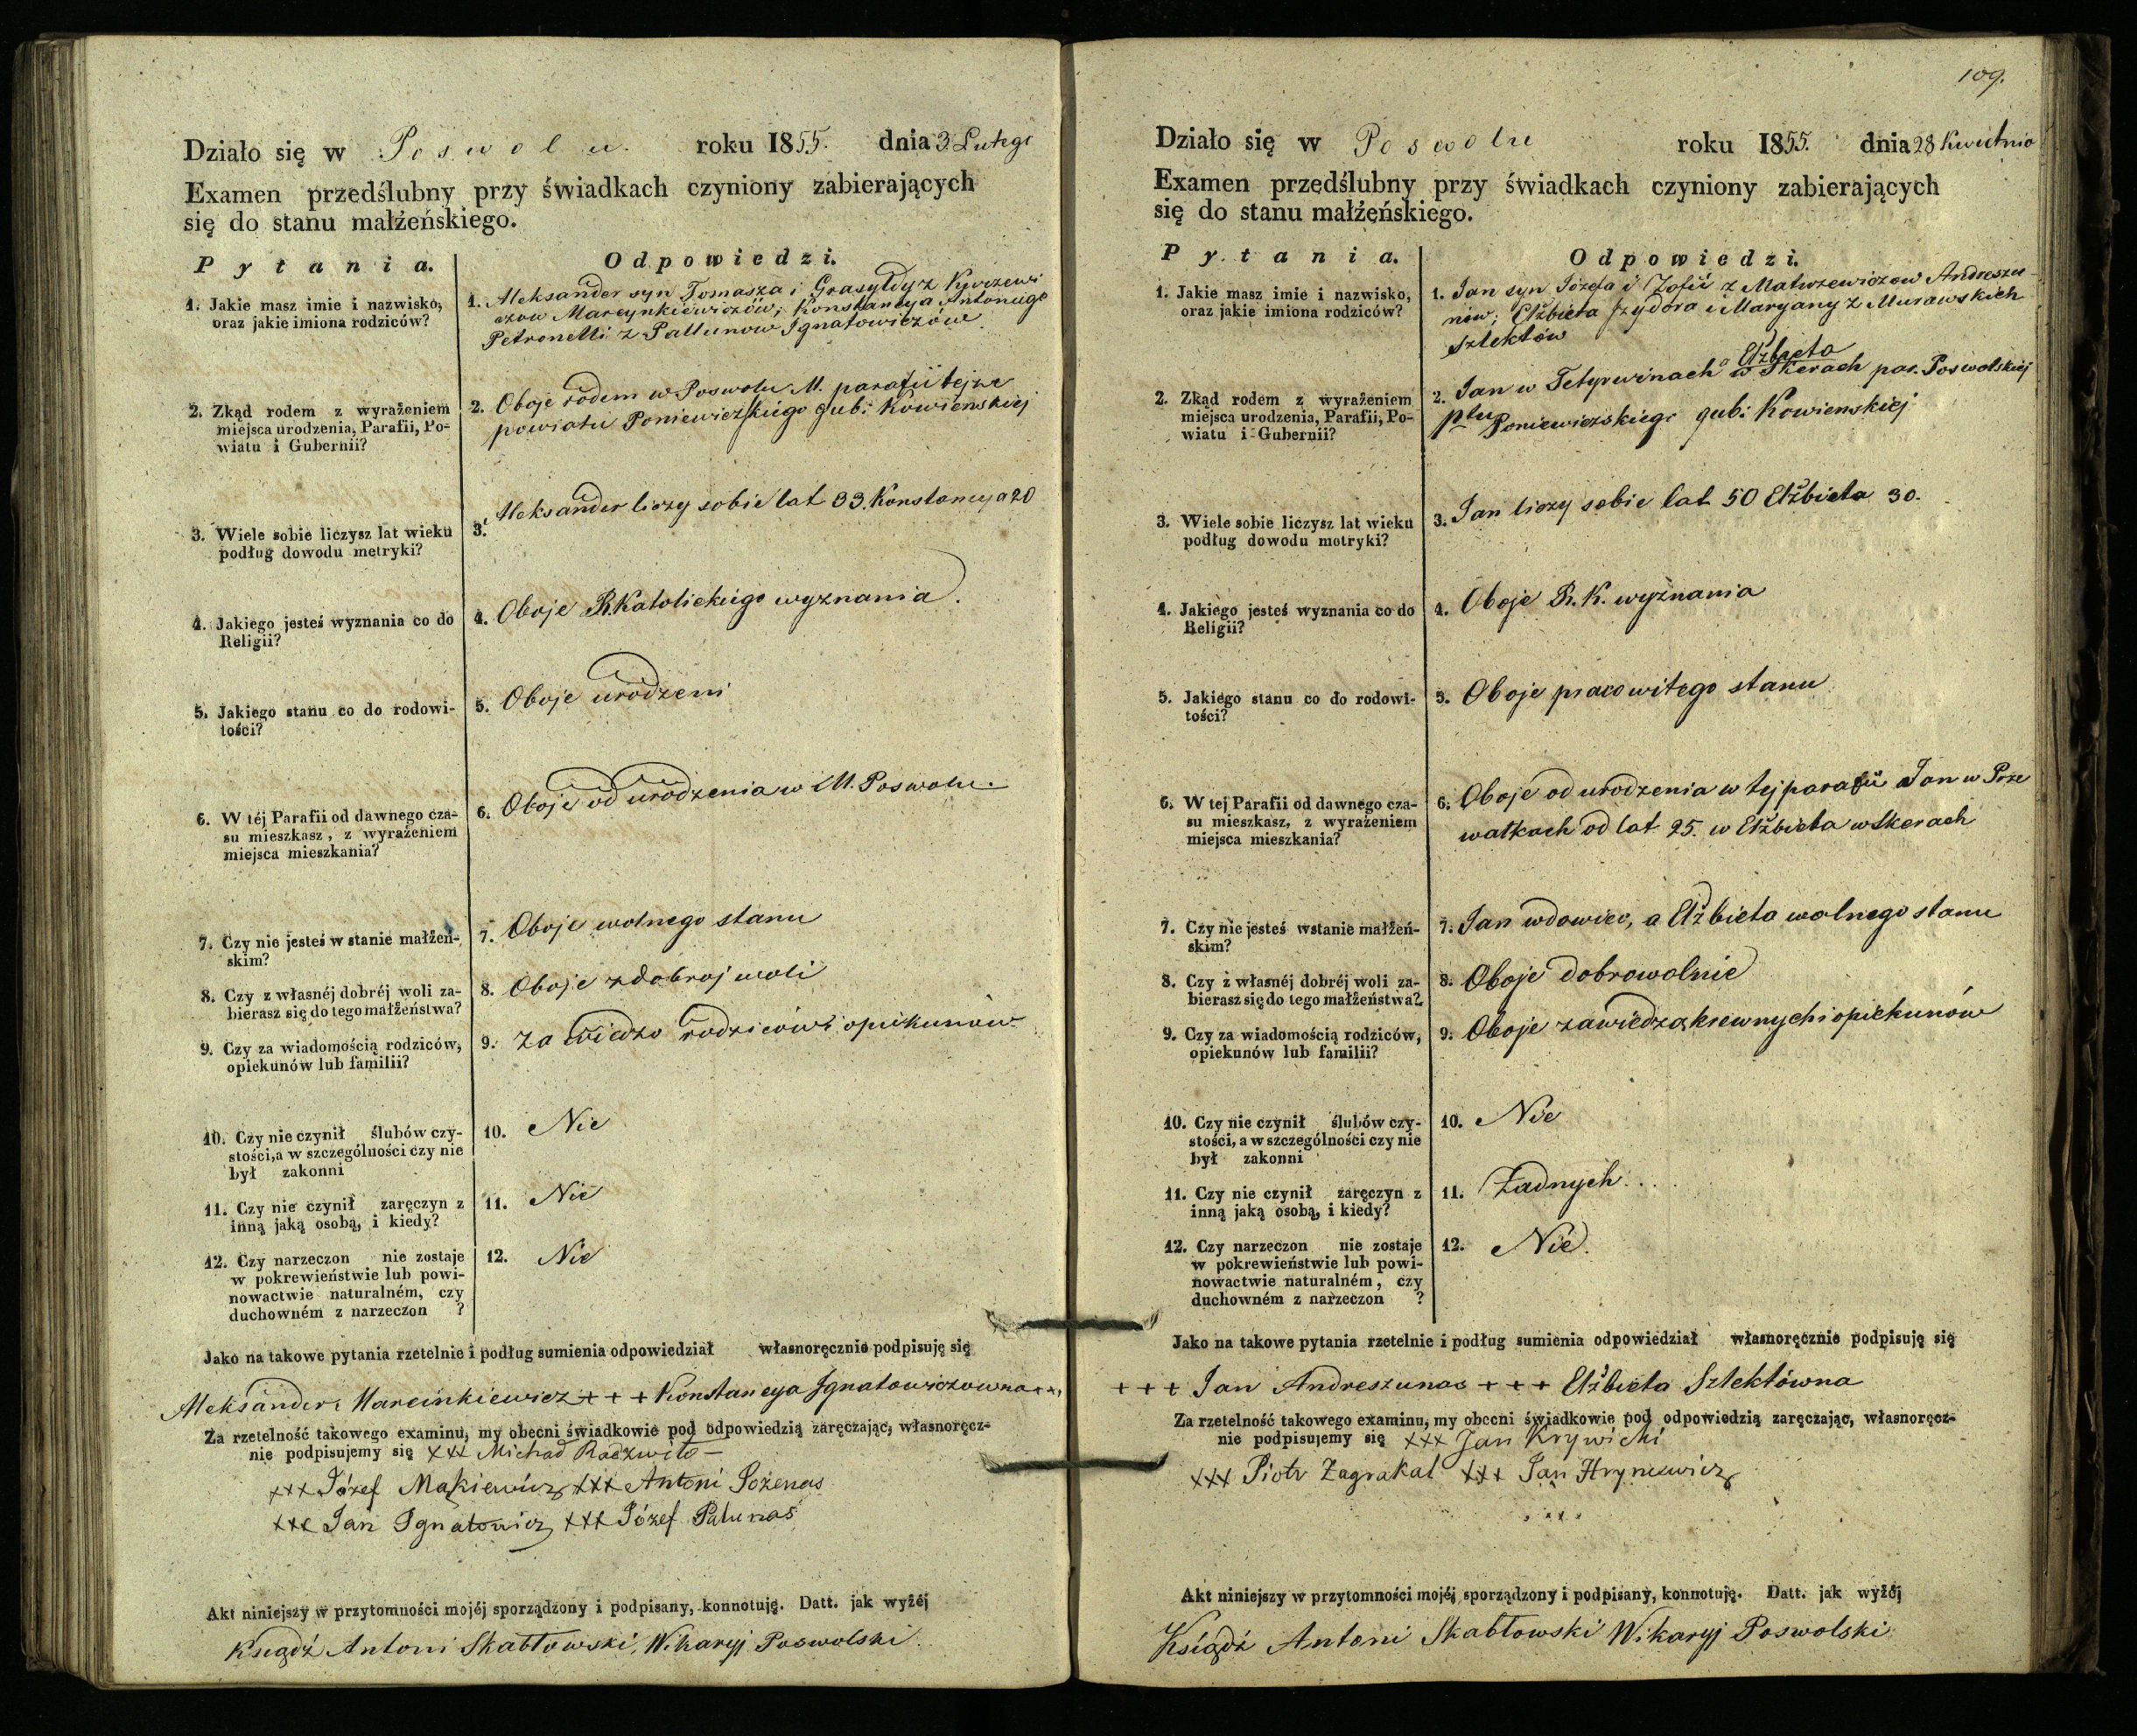 Działo się w Poswolu. roku 1855. dnia 3 Lutego
Examen przedślubny przy świadkach czyniony zabierających
się do stanu małżeńskiego.
Pytania.
Odpowiedzi.
1. Jakie masz imie i nazwisko,
oraz jakie imiona rodziców?
1. Aleksander syn Tomasza i Grasyldy z
Marcynkiewiczów; Konstancya Antoniego
Petronelli z Pallunow Ignatowiczów
2. Zkąd rodem z wyrażeniem
miejsca urodzenia, Parafii, Po-
wiatu i Gubernii?
2. Oboje rodem w Poswolu M. parafii tejze
powiatu Poniewiezskiego gub: Kowienskiej
3. Wiele sobie liczysz lat wieku
podług dowodu metryki?
3. Aleksander liczy sobie lat 33. Konstancya 20
4. Jakiego jesteś wyznania co do
Religii?
4. Oboje R. Katolickiego wyznania.
5. Jakiego stanu co do rodowi-
tości?
5. Oboje urodzeni
6. W téj Parafii od dawnego cza-
su mieszkasz, z wyrażeniem
miejsca mieszkania?
6. Oboje od urodzenia w M. Poswolu.
7. Czy nie jesteś w stanie małżeń-
skim?
7. Oboje wolnego stanu
8. Czy z własnéj dobréj woli za-
bierasz się do tego małżeństwa?
8. Oboje z dobroj woli
9. Czy za wiadomością rodziców,
opiekunów lub familii?
9. Za wiedzo rodziców i opiekunów
10. Czy nie czynił ślubów czy-
stości, a w szczególności czy nie
był zakonni
10. Nie
11. Czy nie czynił zaręczyn z
inną jaką osobą, i kiedy?
11. Nie
12. Czy narzeczon nie zostaje
w pokrewieństwie lub powi-
nowactwie naturalném, czy
duchowném z narzeczon ?
12. Nie
Jako na takowe pytania rzetelnie i podług sumienia odpowiedział własnoręcznie podpisuję się
Aleksander Marcinkiewicz + + + Konstancya Ignatowiczowna + +
Za rzetelność takowego examinu, my obecni świadkowie pod odpowiedzią zaręczając, własnoręcz-
nie podpisujemy się xxx Michał Radzwiło
+++ Józef Mackiewicz +++ Antoni Pożenas
+++ Jan Ignatowicz +++ Józef Palunas
Akt niniejszy w przytomności mojéj sporządzony i podpisany, konnotuję. Datt. jak wyżéj
Ksiądź Antoni Skabłowski, Wikaryj Poswolski.
109.
Działo się w Poswolu roku 1855. dnia 28 Kwietnia
Examen przedślubny przy świadkach czyniony zabierających
się do stanu małżeńskiego.
Pytania.
Odpowiedzi.
1. Jakie masz imie i nazwisko,
oraz jakie imiona rodziców?
1. Jan syn Józefa i Zofii z Matuzewiczow Andreszu-
now; Elżbieta Izydora i Maryany z Murawskich
Szlektów
2. Zkąd rodem z wyrażeniem
miejsca urodzenia, Parafii, Po-
wiatu i Gubernii?
2. Jan w Tetyrwinach a Elżbieta w Skerach par. Poswolskiej
ptu Poniewiezskiego gub: Kowienskiej
3. Wiele sobie liczysz lat wieku
podług dowodu metryki?
3. Jan liczy sobie lat 50 Elżbieta 30.
4. Jakiego jesteś wyznania co do
Religii?
4. Oboje R. K. wyznania
5. Jakiego stanu co do rodowi-
tości?
5. Oboje pracowitego stanu
6. W tej Parafii od dawnego cza-
su mieszkasz, z wyrażeniem
miejsca mieszkania?
6. Oboje od urodzenia w tej parafii Jan w Prze
watkach od lat 25. w Elżbieta w Skerach
7. Czy nie jesteś wstanie małżeń-
skim?
7. Jan wdowiec, a Elżbieta wolnego stanu
8. Czy z własnéj dobréj woli za-
bierasz się do tego małżeństwa?
8. Oboje dobrowolnie
9. Czy za wiadomością rodziców,
opiekunów lub familii?
9. Oboje za wiedzą krewnych i opiekunów
10. Czy nie czynił ślubów czy-
stości, a w szczególności czy nie
był zakonni
10. Nie
11. Czy nie czynił zaręczyn z
inną jaką osobą, i kiedy?
11. Żadnych...
12. Czy narzeczon nie zostaje
w pokrewieństwie lub powi-
nowactwie naturalném, czy
duchowném z narzeczon ?
12. Nie.
Jako na takowe pytania rzetelnie i podług sumienia odpowiedział własnoręcznie podpisuję się
+++ Jan Andreszunas +++ Elżbieta Szlektówna
Za rzetelność takowego examinu, my obecni świadkowie pod odpowiedzią zaręczając, własnoręcz-
nie podpisujemy się xxx Jan Krywicki
xxx Piotr Zagrakal xxx Jan Hryncewicz
Akt niniejszy w przytomności mojéj sporządzony i podpisany, konnotuję. Datt. jak wyżéj
Ksiądź Antoni Skabłowski Wikaryj Poswolski